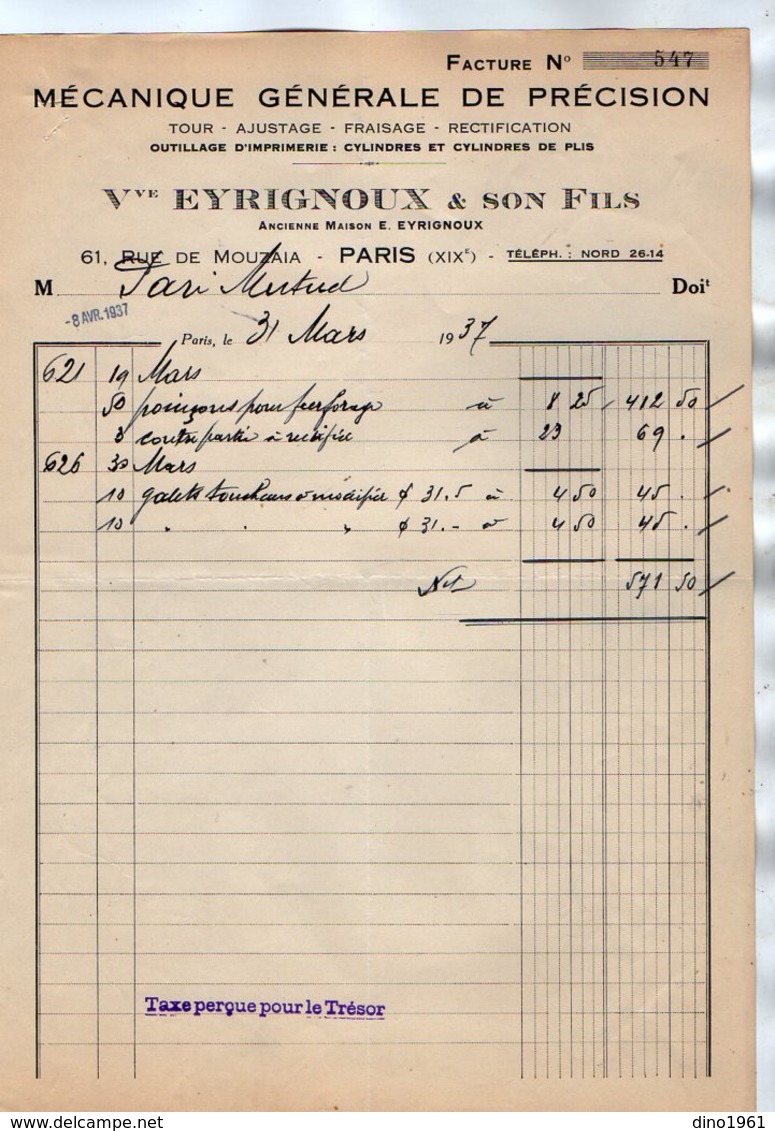 FACTURE N° 547
MÉCANIQUE GÉNÉRALE DE PRÉCISION
TOUR - AJUSTAGE - FRAISAGE - RECTIFICATION
OUTILLAGE D'IMPRIMERIE : CYLINDRES ET CYLINDRES DE PLIS
Vve EYRIGNOUX & SON FILS
ANCIENNE MAISON E. EYRIGNOUX
61, RUE DE MOUZAIA - PARIS (XIXE) - TÉLÉPH. : NORD 26-14
M Pari Mutuel Doit
-8 AVR. 1937
Paris, le 31 Mars 1937
621 19 Mars
50 poinçons pour perforage à 8 25 412 50
3 contre partie à rectifié à 23 69 .
626 30 Mars
10 galets toucheurs à modifié ϕ 31.5 à 4 50 45 .
10 " " " ϕ 31.- à 4 50 45 .
Net 571 50
Taxe perçue pour le Trésor
dino1961